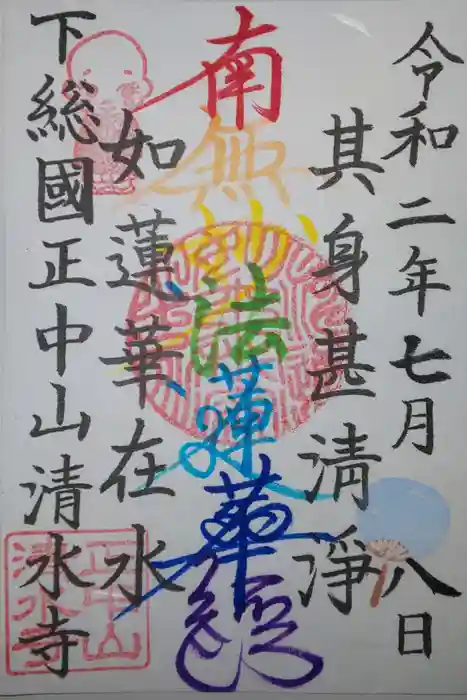 令和二年七月八日
其身甚清淨
南無妙法蓮華経
如蓮華在水
下総國正中山清水寺
正中山
清水寺